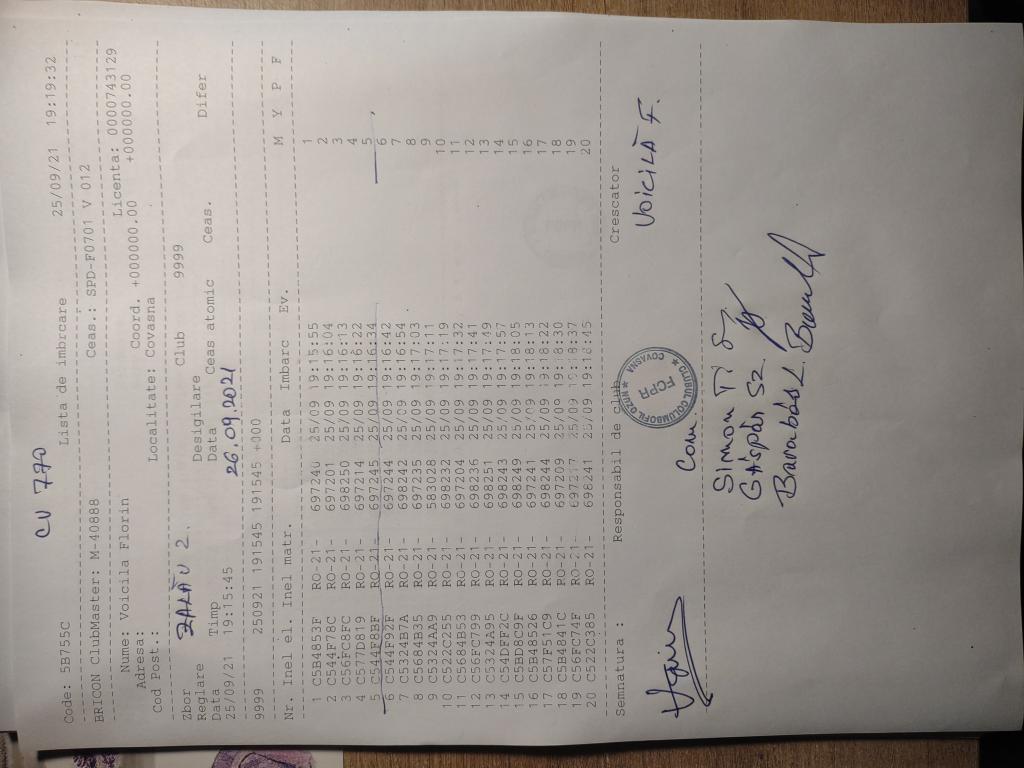 CU 770
Code: 5B755C Lista de imbrcare 25/09/21 19:19:32
BRICON ClubMaster: M-40888 Ceas.: SPD-F0701 V 012
Nume: Voicila Florin Licenta: 0000743129
Adresa: Coord. +000000.00 +000000.00
Cod Post.: Localitate: Covasna
Zbor ZALĂU 2. Club 9999
Reglare Desigilare
Data Timp Data Ceas atomic Ceas. Difer
25/09/21 19:15:45 26.09.2021
9999 250921 191545 191545 +000
Nr. Inel el. Inel matr. Data Imbarc Ev. M Y P F
1 C5B4853F RO-21- 697240 25/09 19:15:55 1
2 C544F78C RO-21- 697201 25/09 19:16:04 2
3 C56FC8FC RO-21- 698250 25/09 19:16:13 3
4 C577D819 RO-21- 697214 25/09 19:16:22 4
5 C544F8BF RO-21- 697245 25/09 19:16:34 5
6 C544F92F RO-21- 697244 25/09 19:16:42 6
7 C5324B7A RO-21- 698242 25/09 19:16:54 7
8 C5684B35 RO-21- 697235 25/09 19:17:03 8
9 C5324AA9 RO-21- 583028 25/09 19:17:11 9
10 C522C255 RO-21- 698232 25/09 19:17:19 10
11 C5684B53 RO-21- 697204 25/09 19:17:32 11
12 C56FC799 RO-21- 698236 25/09 19:17:41 12
13 C5324A95 RO-21- 698251 25/09 19:17:49 13
14 C54DFF2C RO-21- 698243 25/09 19:17:57 14
15 C5BD8C9F RO-21- 698249 25/09 19:18:05 15
16 C5B48526 RO-21- 697241 25/09 19:18:13 16
17 C57F51C9 RO-21- 698244 25/09 19:18:22 17
18 C5B4841C RO-21- 697209 25/09 19:18:30 18
19 C56FC74F RO-21- 25/09 19:18:37 19
20 C522C385 RO-21- 698241 25/09 19:18:45 20
Semnatura : Responsabil de club Crescator
VOICILĂ F.
CLUBUL COLUMBOFIL COVASNA
FCPR
Simon Ti
Gáspár Sz
Barabás L.